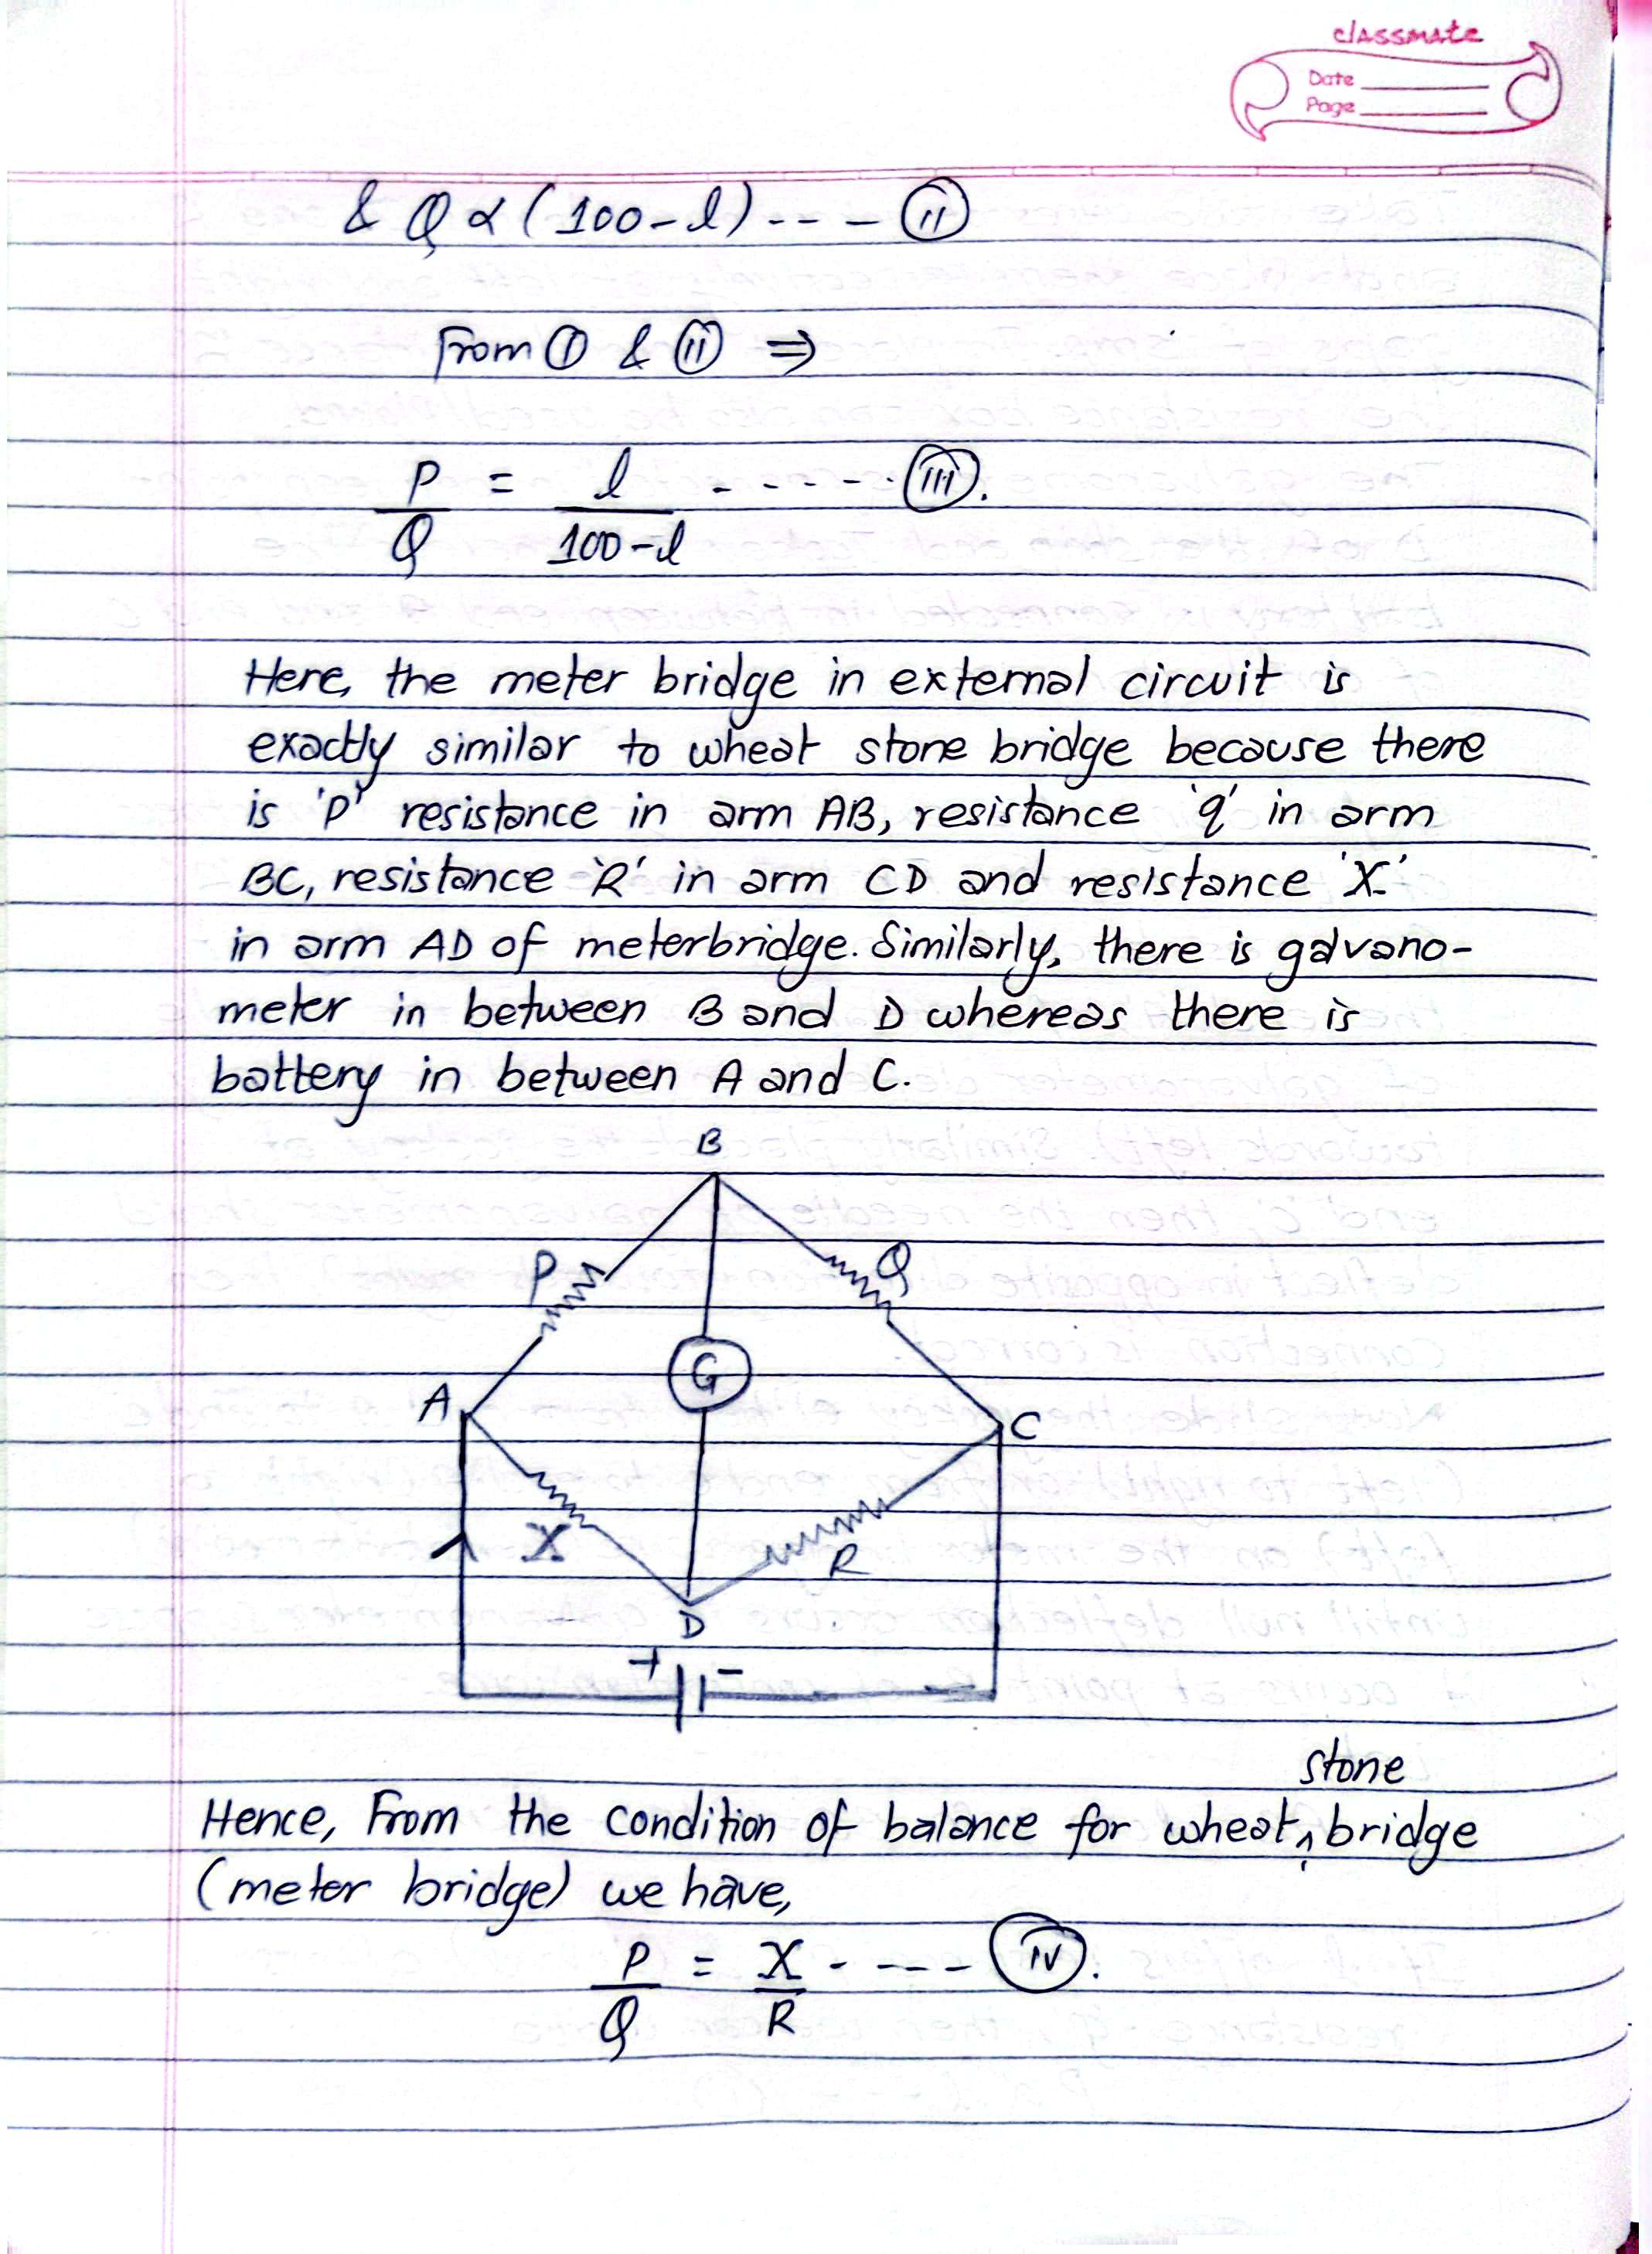 classmate
Date
Page
& Q α (100-l) --- (ii)
From (i) & (ii) ⇒
P/Q = l/100-l ----- (iii).
Here, the meter bridge in external circuit is
exactly similar to wheat stone bridge because there
is 'P' resistance in arm AB, resistance 'q' in arm
BC, resistance 'R' in arm CD and resistance 'X'
in arm AD of meterbridge. Similarly, there is galvano-
meter in between B and D whereas there is
battery in between A and C.
B
P
Q
G
A
C
X
R
D
+ -
stone
Hence, From the condition of balance for wheat^bridge
(meter bridge) we have,
P/Q = X/R ---- (iv).